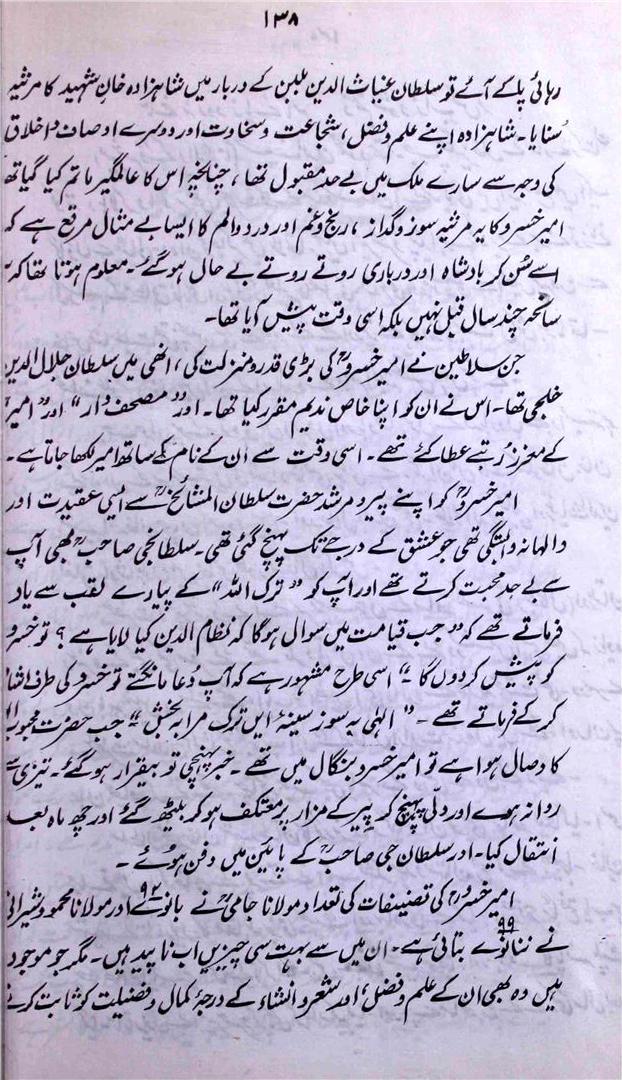 ۱۳۸
رہائی پا کے آئے تو سلطان غیاث الدین بلبن کے دربار میں شاہزادہ خانِ شہید کا مرثیہ
سُنایا۔ شاہزادہ اپنے علم و فضل، شجاعت و سخاوت اور دوسرے اوصاف و اخلاق
کی وجہ سے سارے ملک میں بے حد مقبول تھا، چنانچہ اس کا عالمگیر ماتم کیا گیا تھ
امیر خسرو کا یہ مرثیہ سوز و گداز، رنج و غم اور درد و الم کا ایسا بے مثال مرقع ہے کہ
اسے سُن کر بادشاہ اور درباری روتے روتے بے حال ہو گئے۔ معلوم ہوتا تھا کہ
سانحہ چند سال قبل نہیں بلکہ اسی وقت پیش آیا تھا۔
جن سلاطین نے امیر خسروؒ کی بڑی قدر و منزلت کی، انھی میں سلطان جلال الدین
خلجی تھا۔ اس نے ان کو اپنا خاص ندیم مقرر کیا تھا۔ اور ”مصحف دار“ اور ”امیر“
کے معزز رُتبے عطا کئے تھے۔ اسی وقت سے ان کے نام کے ساتھ امیر لکھا جاتا ہے۔
امیر خسروؒ کو اپنے پیر و مرشد حضرت سلطان المشائخؒ سے ایسی عقیدت اور
والہانہ وابستگی تھی جو عشق کے درجے تک پہنچ گئی تھی۔ سلطانجی صاحبؒ بھی آپ
سے بے حد محبت کرتے تھے اور آپ کو ”ترک اللہ“ کے پیارے لقب سے یاد
فرماتے تھے کہ ”جب قیامت میں سوال ہوگا کہ نظام الدین کیا لایا ہے؟ تو خسرو
کو پیش کر دوں گا۔“ اسی طرح مشہور ہے کہ آپ دُعا مانگتے تو خسرو کی طرف اشا
کر کے فرماتے تھے۔ ”الہٰی بہ سوز سینۂ ایں ترک مرا بہ بخش“ جب حضرت محبوب
کا وصال ہوا ہے تو امیر خسرو بنگال میں تھے۔ خبر پہنچی تو بیقرار ہو گئے۔ تیزی سے
روانہ ہوے اور دلّی پہنچ کر پیر کے مزار پر معتکف ہو کر بیٹھ گئے اور چھ ماہ بعد
انتقال کیا۔ اور سلطان جی صاحبؒ کے پائین میں دفن ہوئے۔
امیر خسروؒ کی تصنیفات کی تعداد مولانا جامیؒ نے بانوے ۹۲ اور مولانا محمود شیرانی
نے ننانوے ۹۹ بتائی ہے۔ ان میں سے بہت سی چیزیں اب ناپید ہیں۔ مگر جو موجود
ہیں وہ بھی ان کے علم و فضل، اور شعر و انشاء کے درجۂ کمال و فضیلت کو ثابت کرنے